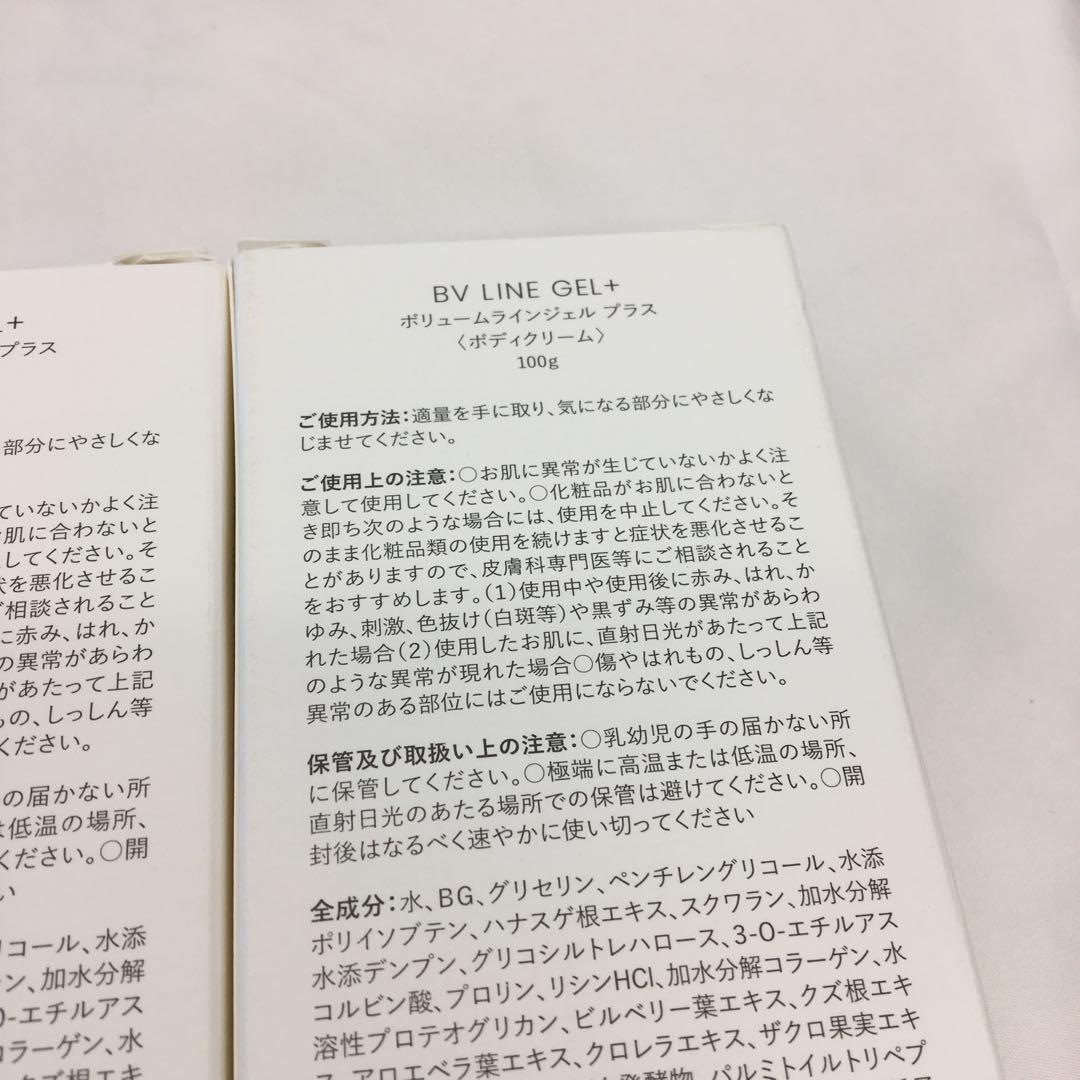 BV LINE GEL+
ボリュームラインジェル プラス
〈ボディクリーム〉
100g
ご使用方法：適量を手に取り、気になる部分にやさしくな
じませてください。
ご使用上の注意：○お肌に異常が生じていないかよく注
意して使用してください。○化粧品がお肌に合わないと
き即ち次のような場合には、使用を中止してください。そ
のまま化粧品類の使用を続けますと症状を悪化させるこ
とがありますので、皮膚科専門医等にご相談されること
をおすすめします。（1）使用中や使用後に赤み、はれ、か
ゆみ、刺激、色抜け（白斑等）や黒ずみ等の異常があらわ
れた場合（2）使用したお肌に、直射日光があたって上記
のような異常が現れた場合○傷やはれもの、しっしん等
異常のある部位にはご使用にならないでください。
保管及び取扱い上の注意：○乳幼児の手の届かない所
に保管してください。○極端に高温または低温の場所、
直射日光のあたる場所での保管は避けてください。○開
封後はなるべく速やかに使い切ってください
全成分：水、BG、グリセリン、ペンチレングリコール、水添
ポリイソブテン、ハナスゲ根エキス、スクワラン、加水分解
水添デンプン、グリコシルトレハロース、3-O-エチルアス
コルビン酸、プロリン、リシンHCl、加水分解コラーゲン、水
溶性プロテオグリカン、ビルベリー葉エキス、クズ根エキ
ス、アロエベラ葉エキス、クロレラエキス、ザクロ果実エキ
発酵物、パルミトイルトリペプ
L+
プラス
部分にやさしくな
ていないかよく注
お肌に合わないと
してください。そ
状を悪化させるこ
ご相談されること
に赤み、はれ、か
の異常があらわ
があたって上記
もの、しっしん等
ください。
の届かない所
は低温の場所、
ください。○開
い
リコール、水添
ン、加水分解
O-エチルアス
コラーゲン、水
クズ根エキ